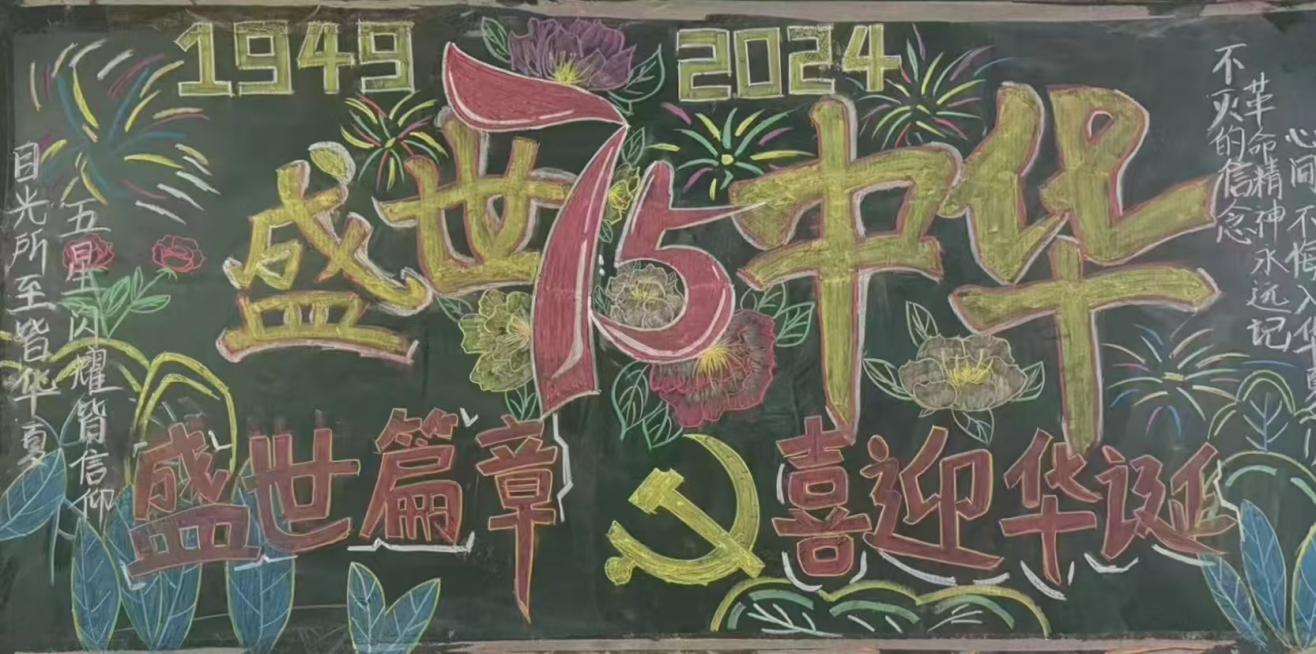 1949
2024
盛世
75
中华
盛世篇章
喜迎华诞
目光所至皆华夏
五星闪耀皆信仰
不灭的信念
革命精神永远记
心间